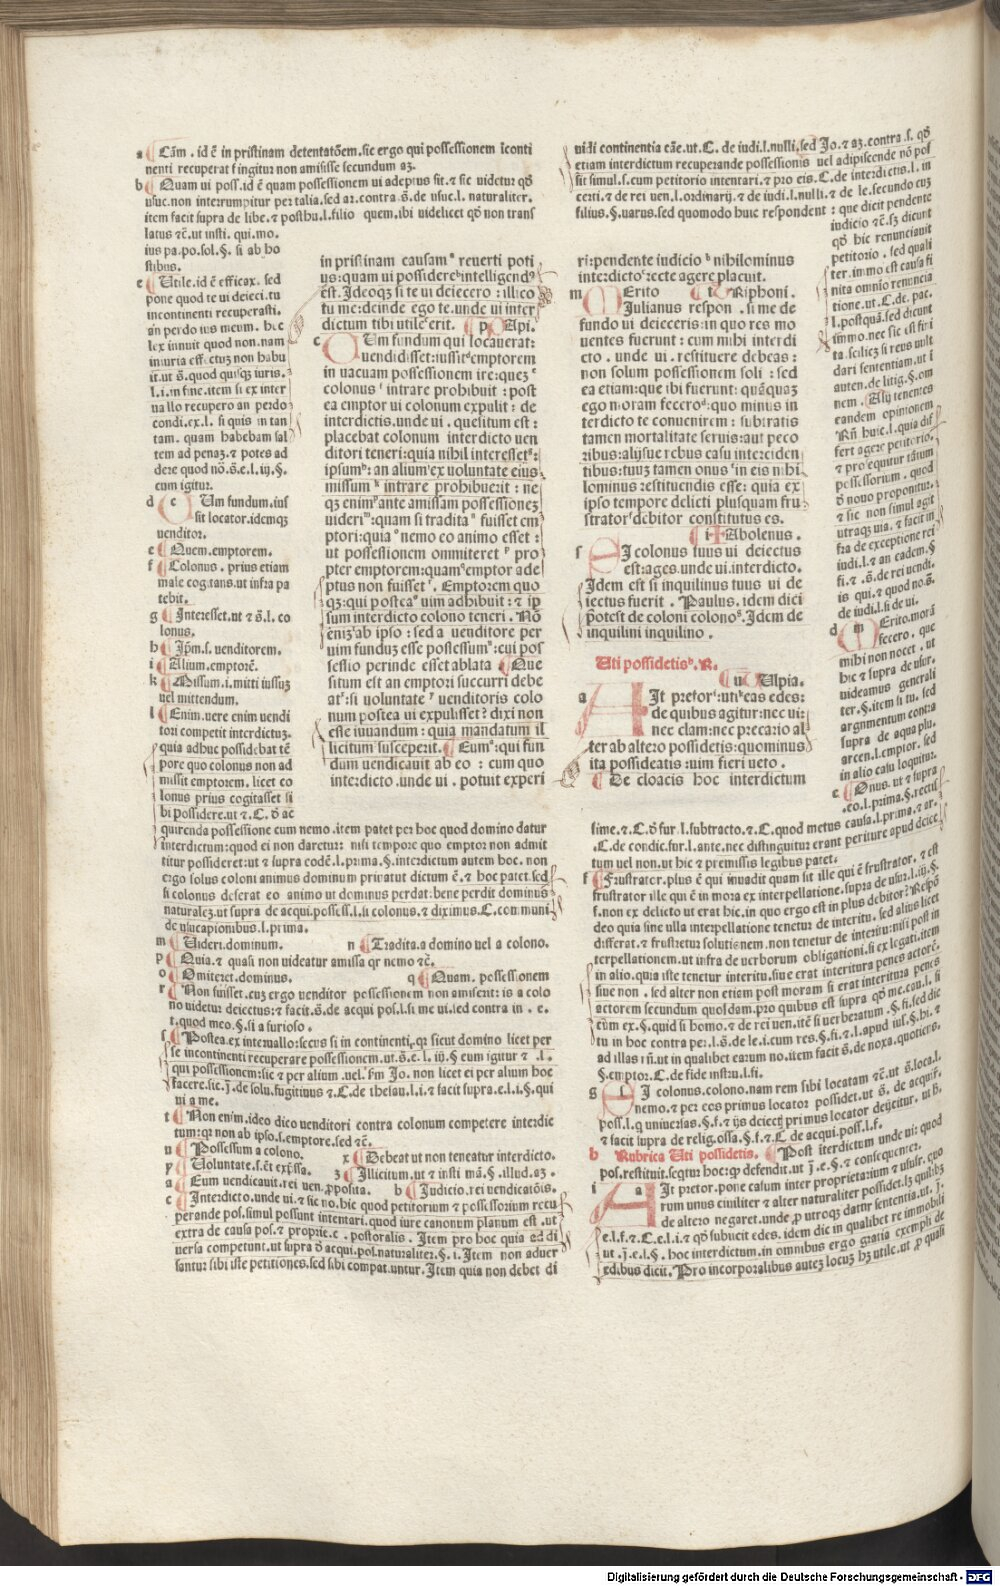 a Cām . id ē in pristinam detentatōem. sic ergo qui possessionem iconti
nenti recuperat fingitur non amisisse secundum az.
b Quam ui poss. id ē quam possessionem ui adeptus sit. ⁊ sic uidetur qd̄
usuc. non interrumpitur per talia. sed ar. contra s̄. de usuc. l. naturaliter.
item facit supra de libe. ⁊ posthu. l. filio quem. ibi uidelicet qd̄ non trans
latus ⁊c̄. ut insti. qui. mo.
ius pa. po. sol. §. si ab ho
stibus.
c Utile. id ē efficax. sed
pone quod te ui deieci. tu
incontinenti recuperasti.
an perdo ius meum. hic
lex innuit quod non. nam
iniuria effectuz non habu
it. ut s̄. quod quisqz iuris.
l. i. in fine. item si ex inter
uallo recupero an perdo
condi. ex. l. si quis in tan
tam. quam habebam sal
tem ad penaz. ⁊ potes ad
dere quod nō. s̄. e. l. iij. §.
cum igitur.
d c Um fundum. ius
sit locator. idemqz
uenditor.
e Quem. emptorem.
f Colonus. prius etiam
male cogitans. ut infra pa
tebit.
g Interesset. ut ⁊ s̄. l. co
lonus.
h Ip̄m. s. uenditorem.
i Alium. emptorē.
k Missum. i. mitti iussuz
uel mittendum.
l Enim. uere enim uendi
tori competit interdictuz.
quia adhuc possidebat tē
pore quo colonus non ad
misit emptorem. licet co
lonus prius cogitasset si
bi possidere. ut ⁊ . C. d̄ ac
quirenda possessione cum nemo. item patet per hoc quod domino datur
interdictum: quod ei non daretur: nisi tempore quo emptor non admit
titur possideret: ut ⁊ supra eodē. l. prima. §. interdictum autem hoc. non
ergo solus coloni animus dominum priuat ut dictum ē. ⁊ hoc patet. sed
si colonus deserat eo animo ut dominus perdat: bene perdit dominus
naturalez. ut supra de acqui. possess. l. si colonus. ⁊ diximus. C. communi
de usucapionibus. l. prima.
m Uideri. dominum. n Tradita. a domino uel a colono.
p Quia. ⁊ quasi non uideatur amissa qr nemo ⁊c̄.
o Omiteret. dominus. q Quam. possessionem
r Non fuisset. cuz ergo uenditor possessionem non amiserit: is a colo
no uidetur deiectus: ⁊ facit. s̄. de acqui pos. l. si me ui. sed contra in . e.
t. quod meo. §. si a furioso.
s Postea. ex interuallo: secus si in continenti. qr sicut domino licet per
se incontinenti recuperare possessionem. ut. s̄. e. l. iij. § cum igitur ⁊ . l.
qui possessionem: sic ⁊ per alium. uel. s̄m Jo. non licet ei per alium hoc
facere. sic. j̄. de solu. fugitiuus ⁊ . C. de thesau. l. i. ⁊ facit supra. e. l. i. §. qui
ui a me.
t Non enim. ideo dico uenditori contra colonum competere interdic
tum: qr non ab ipso. s. emptore. sed ⁊c̄.
u Possessum a colono. x Debeat ut non teneatur interdicto.
y Voluntate. s. ēt exp̄ssa. z Illicitum. ut ⁊ insti mā. §. illud. az.
a Eum uendicauit. rei uen. p̱posita. b Judicio. rei uendicatōis.
c Interdicto. unde ui. ⁊ sic no. hic quod petitorium ⁊ possessorium recu
perande pos. simul possunt intentari. quod iure canonum planum est. ut
extra de causa pos. ⁊ proprie. c. pastoralis. Item pro hoc quia ed di
uersa competunt. ut supra d̄ acqui. pol. naturaliter. §. i. Item non aduer
santur sibi iste petitiones. sed sibi compatiuntur. Item quia non debet di
in pristinam causam a reuerti poti
us: quam ui possidere b intelligendus
est. Ideoqz si te ui deiecero: illico
tu me: deinde ego te. unde ui inter
dictum tibi utile c erit. p Api.
c Um fundum qui locauerat:
uendidisset: iussit d emptorem
in uacuam possessionem ire: quez e
colonus f intrare prohibuit: post
ea emptor ui colonum expulit: de
interdictis. unde ui. quesitum est:
placebat colonum interdicto uen
ditori teneri: quia nihil interesset g:
ipsum h: an alium i ex uoluntate eius
missum k intrare prohibuerit: ne
qz enim l ante amissam possessionez
uideri m: quam si tradita n fuisset em
ptori: quia o nemo eo animo esset:
ut possessionem ommiteret p pro
pter emptorem: quam q emptor ade
ptus non fuisset r. Emptorem quo
qz: qui postea s uim adhibuit: ⁊ ip
sum interdicto colono teneri. Nō
eniz t ab ipso: sed a uenditore per
uim fundus esse possessum u: cui pos
sessio perinde esset ablata Que
situm est an emptori succurri debe
at x: si uoluntate y uenditoris colo
num postea ui expulisset? dixi non
esse iuuandum: quia mandatum il
licitum z susceperit. Eum a: qui fun
dum uendicauit ab eo: cum quo
interdicto. unde ui. potuit experi
uidi continentia cāe. ut. C. de iudi. l. nulli. sed Jo. ⁊ az. contra. s. qd̄
etiam interdictum recuperande possessionis uel adipiscende nō pos
sit simul. s. cum petitorio intentari. ⁊ pro eis. C. de interdictis. l. in
certi. ⁊ de rei uen. l. ordinarij. ⁊ de iudi. l. nulli. ⁊ de le. secundo cuz
filius. §. uarus. sed quomodo huic respondent: que dicit pendente
iudicio ⁊c̄. sz dicunt
qd̄ hic renunciauit
petitorio. sed quali
ter. immo est causa fi
nita omnio renuncia
tione. ut. C. de. pac.
l. postquā. sed dicunt
immo. nec sic est fini
ta. scilicz si reus uult
dari sententiam. ut i
auten. de litig. §. om
nem. Alij tenentes
eandem opinionem
Rn̄ huic. l. quia dif
fert agere petitorio.
⁊ prosequitur tātum
possessorium. quod
d̄ nouo proponitur.
⁊ sic non simul agit
utraqz uia. ⁊ facit in
fra de exceptione rei
iudi. l. ⁊ an eadem. §
fi. ⁊ . s̄. de rei uendi.
is qui. ⁊ quod no. s̄.
de iudi. l. si de ui.
d m Erito. morā
fecero. que
mihi non nocet. ut
hic ⁊ supra de usur.
uideamus generali
ter. §. item si tu. sed
argumentum contra
supra de aqua plu.
arcen. l. emptor. sed
in alio casu loquitur.
e Onus. ut ⁊ supra
.eo. l. prima. §. rectis
sime. ⁊ . C. d̄ fur. l. subtracto. ⁊ . C. quod metus causa. l. prima. ⁊ ar.
.C. de condic. fur. l. ante. nec distinguitur erant periture apud deiec
tum uel non. ut hic ⁊ premissis legibus patet.
f Frustrator. plus ē qui inuadit quam sit ille qui ē frustrator. ⁊ est
frustrator ille qui ē in mora ex interpellatione. supra de usur. l. iij. §.
s. non ex delicto ut erat hic. in quo ergo est in plus debitor? Respō
deo quia sine ulla interpellatione tenetur de interitu. sed alius licet
differat. ⁊ frustretur solutionem. non tenetur de interitu: nisi post in
terpellationem. ut infra de uerborum obligationi. si ex legati. item
in alio. quia iste tenetur interitu. siue erat interitura penes actorē.
siue non. sed alter non etiam post moram si erat interitura penes
actorem secundum quosdam. pro quibus est supra qd̄ me. cau. l. si
cūm ex. §. quid si homo. ⁊ de rei uen. itē si uerberatum. §. fi. sed die
tu in hoc contra per. l. s̄. de le. i. cum res. §. fi. ⁊ . l. apud ius. §. hi. ⁊
ad illas rn̄. ut in qualibet earum no. item facit s̄. de noxa. quotiens.
§. emptor. C. de fide instru. l. fi.
g s I colonus. colono. nam rem sibi locatam ⁊c̄. ut s̄. loca. l.
nemo. ⁊ per eos primus locator possidet. ut s̄. de acquir.
poss. l. q uniuersas. §. f. ⁊ ijs deiectis primus locator deijcitur. ut h.
⁊ facit supra de relig. ossa. §. f. ⁊ C de acqui. poss. l. f.
h Rubrica Uti possidetis. Post iterdictum unde ui: quod
pos. restituit. seqtur hoc: qp defendit. ut j̄. e. §. ⁊ consequenter.
i a It pretor. pone casum inter proprietarium ⁊ usufr. quo
rum unus ciuiliter ⁊ alter naturaliter possidet. sz quilibz
de altero negaret. unde p utroqz datur sententia. ut. j̄.
e. l. f. ⁊ C. e. l. i. ⁊ qd̄ subicit edes. idem dic in qualibet re immobili
ut. j̄. e. l. §. hoc interdictum. in omnibus ergo gratia exempli de
edibus dicit. Pro incorporalibus autez locuz hz utile. ut p quasi
ri: pendente iudicio b nihilominus
interdicto c recte agere placuit.
m Erito t Riphoni.
Julianus respon. si me de
fundo ui deieceris: in quo res mo
uentes fuerunt: cum mihi interdi
cto. unde ui. restituere debeas:
non solum possessionem soli: sed
ea etiam: que ibi fuerunt: quāquaz
ego moram fecero d: quo minus in
terdicto te conuenirem: subtratis
tamen mortalitate seruis: aut peco
ribus: alijsue rebus casu interciden
tibus: tuuz tamen onus e in eis nihi
lominus restituendis esse: quia ex
ipso tempore delicti plusquam fru
strator f debitor constitutus es.
i Abolenus.
s I colonus tuus ui deiectus
est: ages. unde ui. interdicto.
Idem est si inquilinus tuus ui de
iectus fuerit. Paulus. idem dici
potest de coloni colono g. Idem de
inquilini inquilino.
Uti possidetis h. R.
u Ulpia.
a It pretor i: uti k eas edes:
de quibus agitur: nec ui:
nec clam: nec precario al
ter ab altero possidetis: quominus
ita possideatis: uim fieri ueto.
De cloacis hoc interdictum
Digitalisierung gefördert durch die Deutsche Forschungsgemeinschaft - DFG